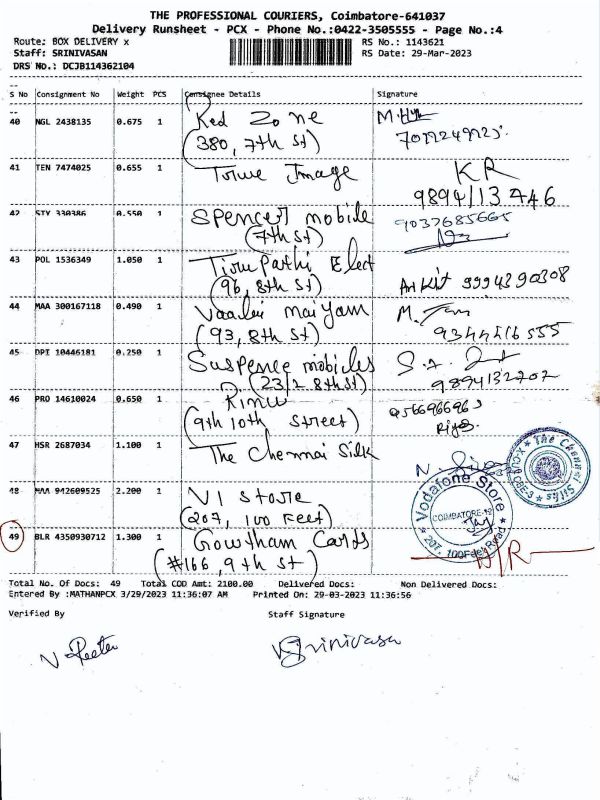 THE PROFESSIONAL COURIERS, Coimbatore-641037
Delivery Runsheet - PCX - Phone No.:0422-3505555 - Page No.:4
Route: BOX DELIVERY x
RS No.: 1143621
Staff: SRINIVASAN
RS Date: 29-Mar-2023
DRS No.: DCJB114362104
S No Consignment No Weight PCS Consignee Details Signature
40 NGL 2438135 0.675 1 Red Zone
(380, 7th st)
41 TEN 7474025 0.655 1 Image KR
9894113446
42 STY 330386 0.550 1 Spencer mobile 9037685665
(7th st)
43 POL 1536349 1.050 1 Tirupathi Elect
(96, 8th st) Ankit 9994390308
44 MAA 300167118 0.490 1 Vaalai maiyam M.
(93, 8th st)
45 DPI 10446181 0.250 1 Suspence mobiles
(23/2 8th st) 9894132702
46 PRO 14610024 0.650 1 9566966963
(9th 10th Street)
47 HSR 2687034 1.100 1 The Chennai Silk
The Chennai Silks
CBE-3
48 MAA 942609525 2.200 1 VI Store
(207, 100 Feet)
Vodafone Store
COIMBATORE-12
207, 100Feet Road
49 BLR 4350930712 1.300 1 Gowtham Cards
(#166, 9th st)
Total No. Of Docs: 49 Total COD Amt: 2100.00 Delivered Docs: Non Delivered Docs:
Entered By :MATHANPCX 3/29/2023 11:36:07 AM Printed On: 29-03-2023 11:36:56
Verified By Staff Signature
Srinivasa